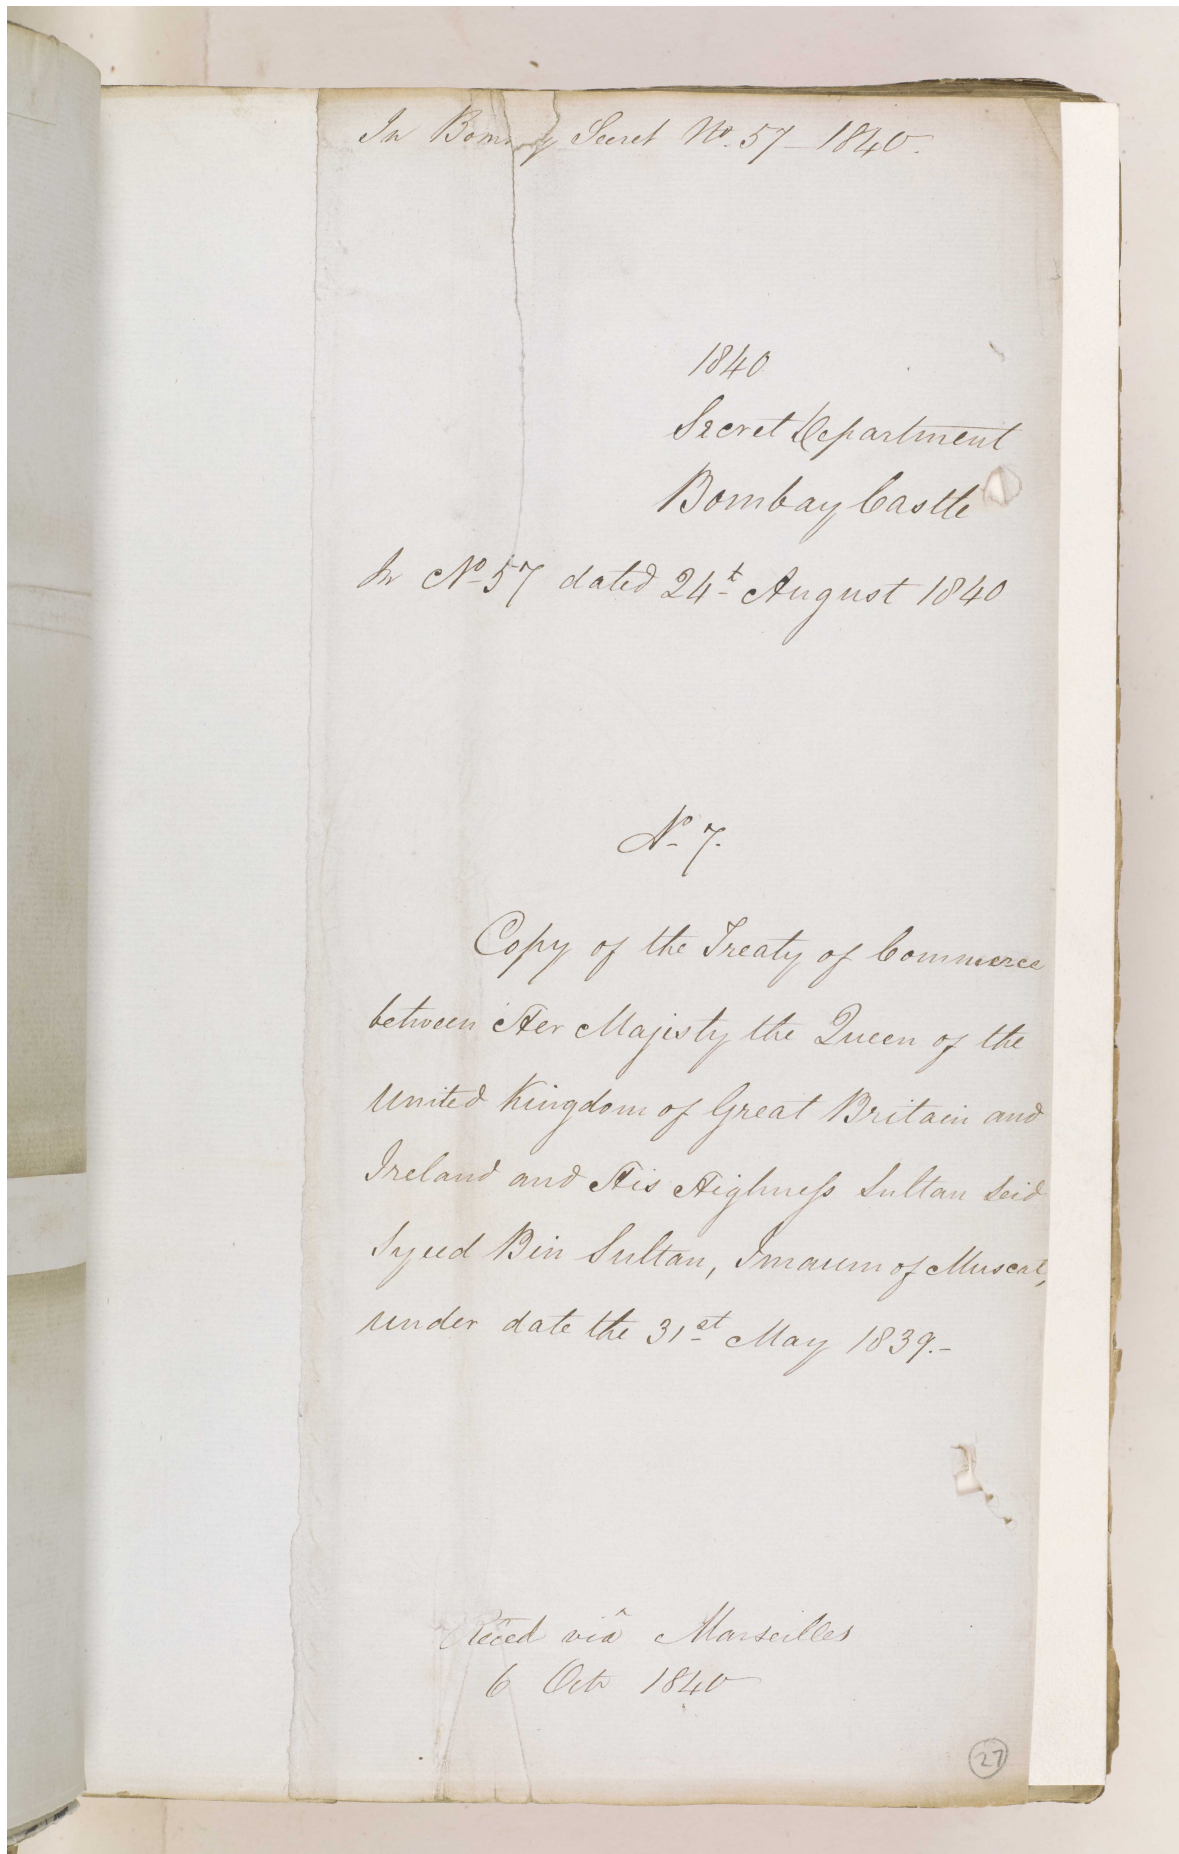 In Bombay Secret No. 57 - 1840.
1840
Secret Department
Bombay Castle
In No. 57 dated 24th August 1840
No. 7.
Copy of the Treaty of Commerce
between Her Majisty the Queen of the
United Kingdom of Great Britain and
Ireland and His Highness Sultan Seid
Syeed Bin Sultan, Imaum of Muscat,
under date the 31st May 1839.-
Reced viâ Marseilles
6 Octr 1840
27